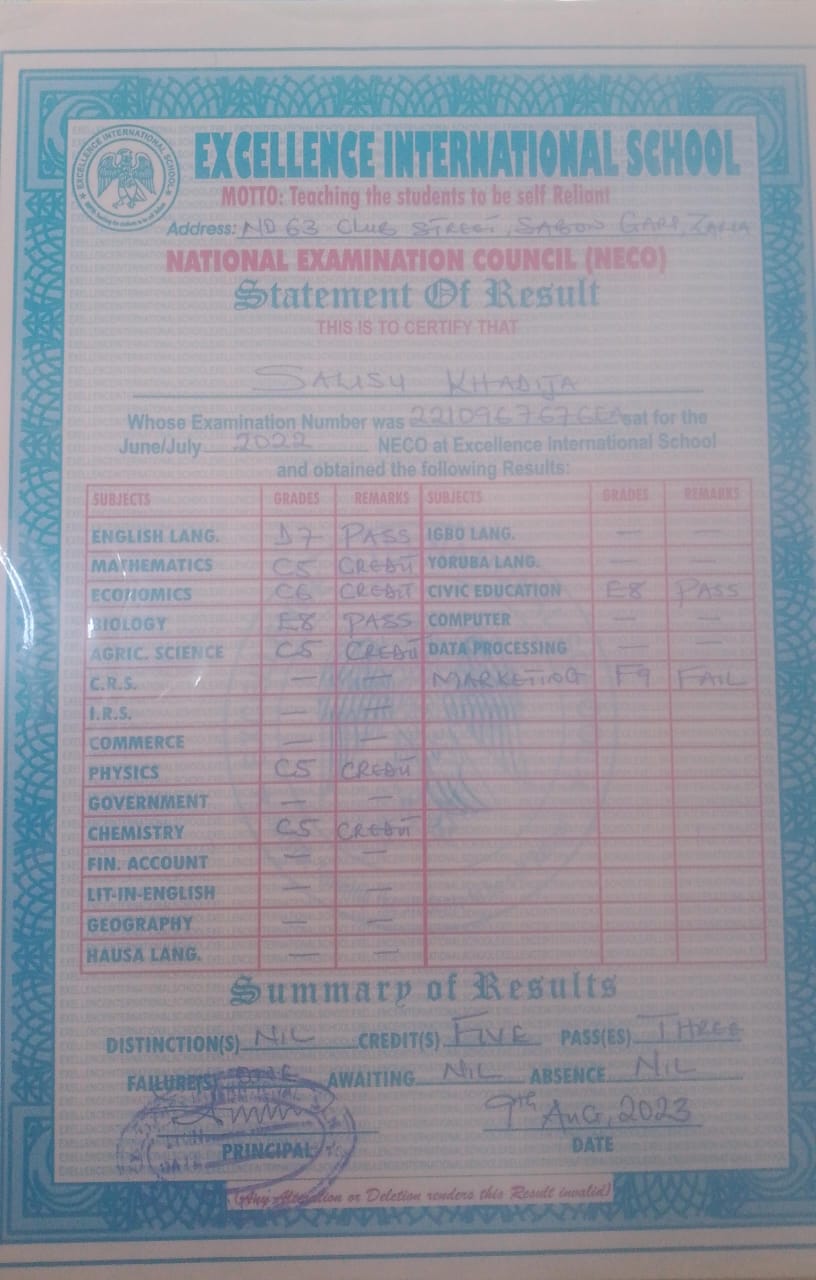 EXCELLENCE INTERNATIONAL SCHOOL
EXCELLENCE INTERNATIONAL SCHOOL
MOTTO: Teaching the students to be self Reliant
Address: NO 63 CLUB STREET, SABON GARI, ZARIA
NATIONAL EXAMINATION COUNCIL (NECO)
Statement Of Result
THIS IS TO CERTIFY THAT
SALISU KHADIJA
Whose Examination Number was 2210967676EA sat for the
June/July 2022 NECO at Excellence International School
and obtained the following Results:
SUBJECTS GRADES REMARKS SUBJECTS GRADES REMARKS
ENGLISH LANG. D7 PASS IGBO LANG. — —
MATHEMATICS C5 CREDIT YORUBA LANG. — —
ECONOMICS C6 CREDIT CIVIC EDUCATION E8 PASS
BIOLOGY E8 PASS COMPUTER — —
AGRIC. SCIENCE C5 CREDIT DATA PROCESSING — —
C.R.S. — — MARKETING F9 FAIL
I.R.S. — —
COMMERCE — —
PHYSICS C5 CREDIT
GOVERNMENT — —
CHEMISTRY C5 CREDIT
FIN. ACCOUNT — —
LIT-IN-ENGLISH — —
GEOGRAPHY — —
HAUSA LANG. — —
Summary of Results
DISTINCTION(S) NIL CREDIT(S) FIVE PASS(ES) THREE
FAILURE(S) ONE AWAITING NIL ABSENCE NIL
9th AUG, 2023
PRINCIPAL DATE
(Any Alteration or Deletion renders this Result invalid)